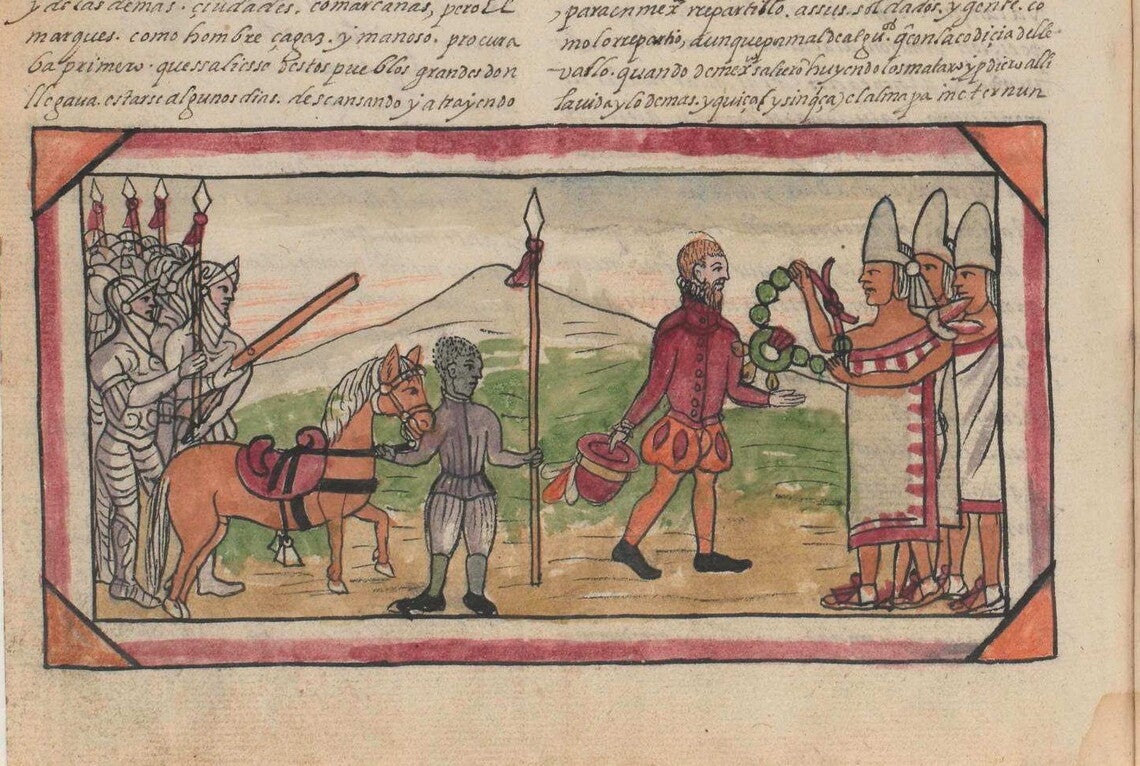 y de las demas. ciudades, comarcanas, pero El
marques. como hombre çagaz. y mañoso. procura
ba primero. que ssaliesse destos pueblos grandes don
llegava. estarse algunos dias. descansando y atrayendo
para en mexº rrepartillo. assus. soldados, y gente. co
molo rrepartio, aunque pa mal de alguºs q con la codiçia de lle
vallo. quando de mexº salierō huyendo los mataro y pdiero alli
la vida y lo demas. y quiça (y sin qça) el alma pa in eternun